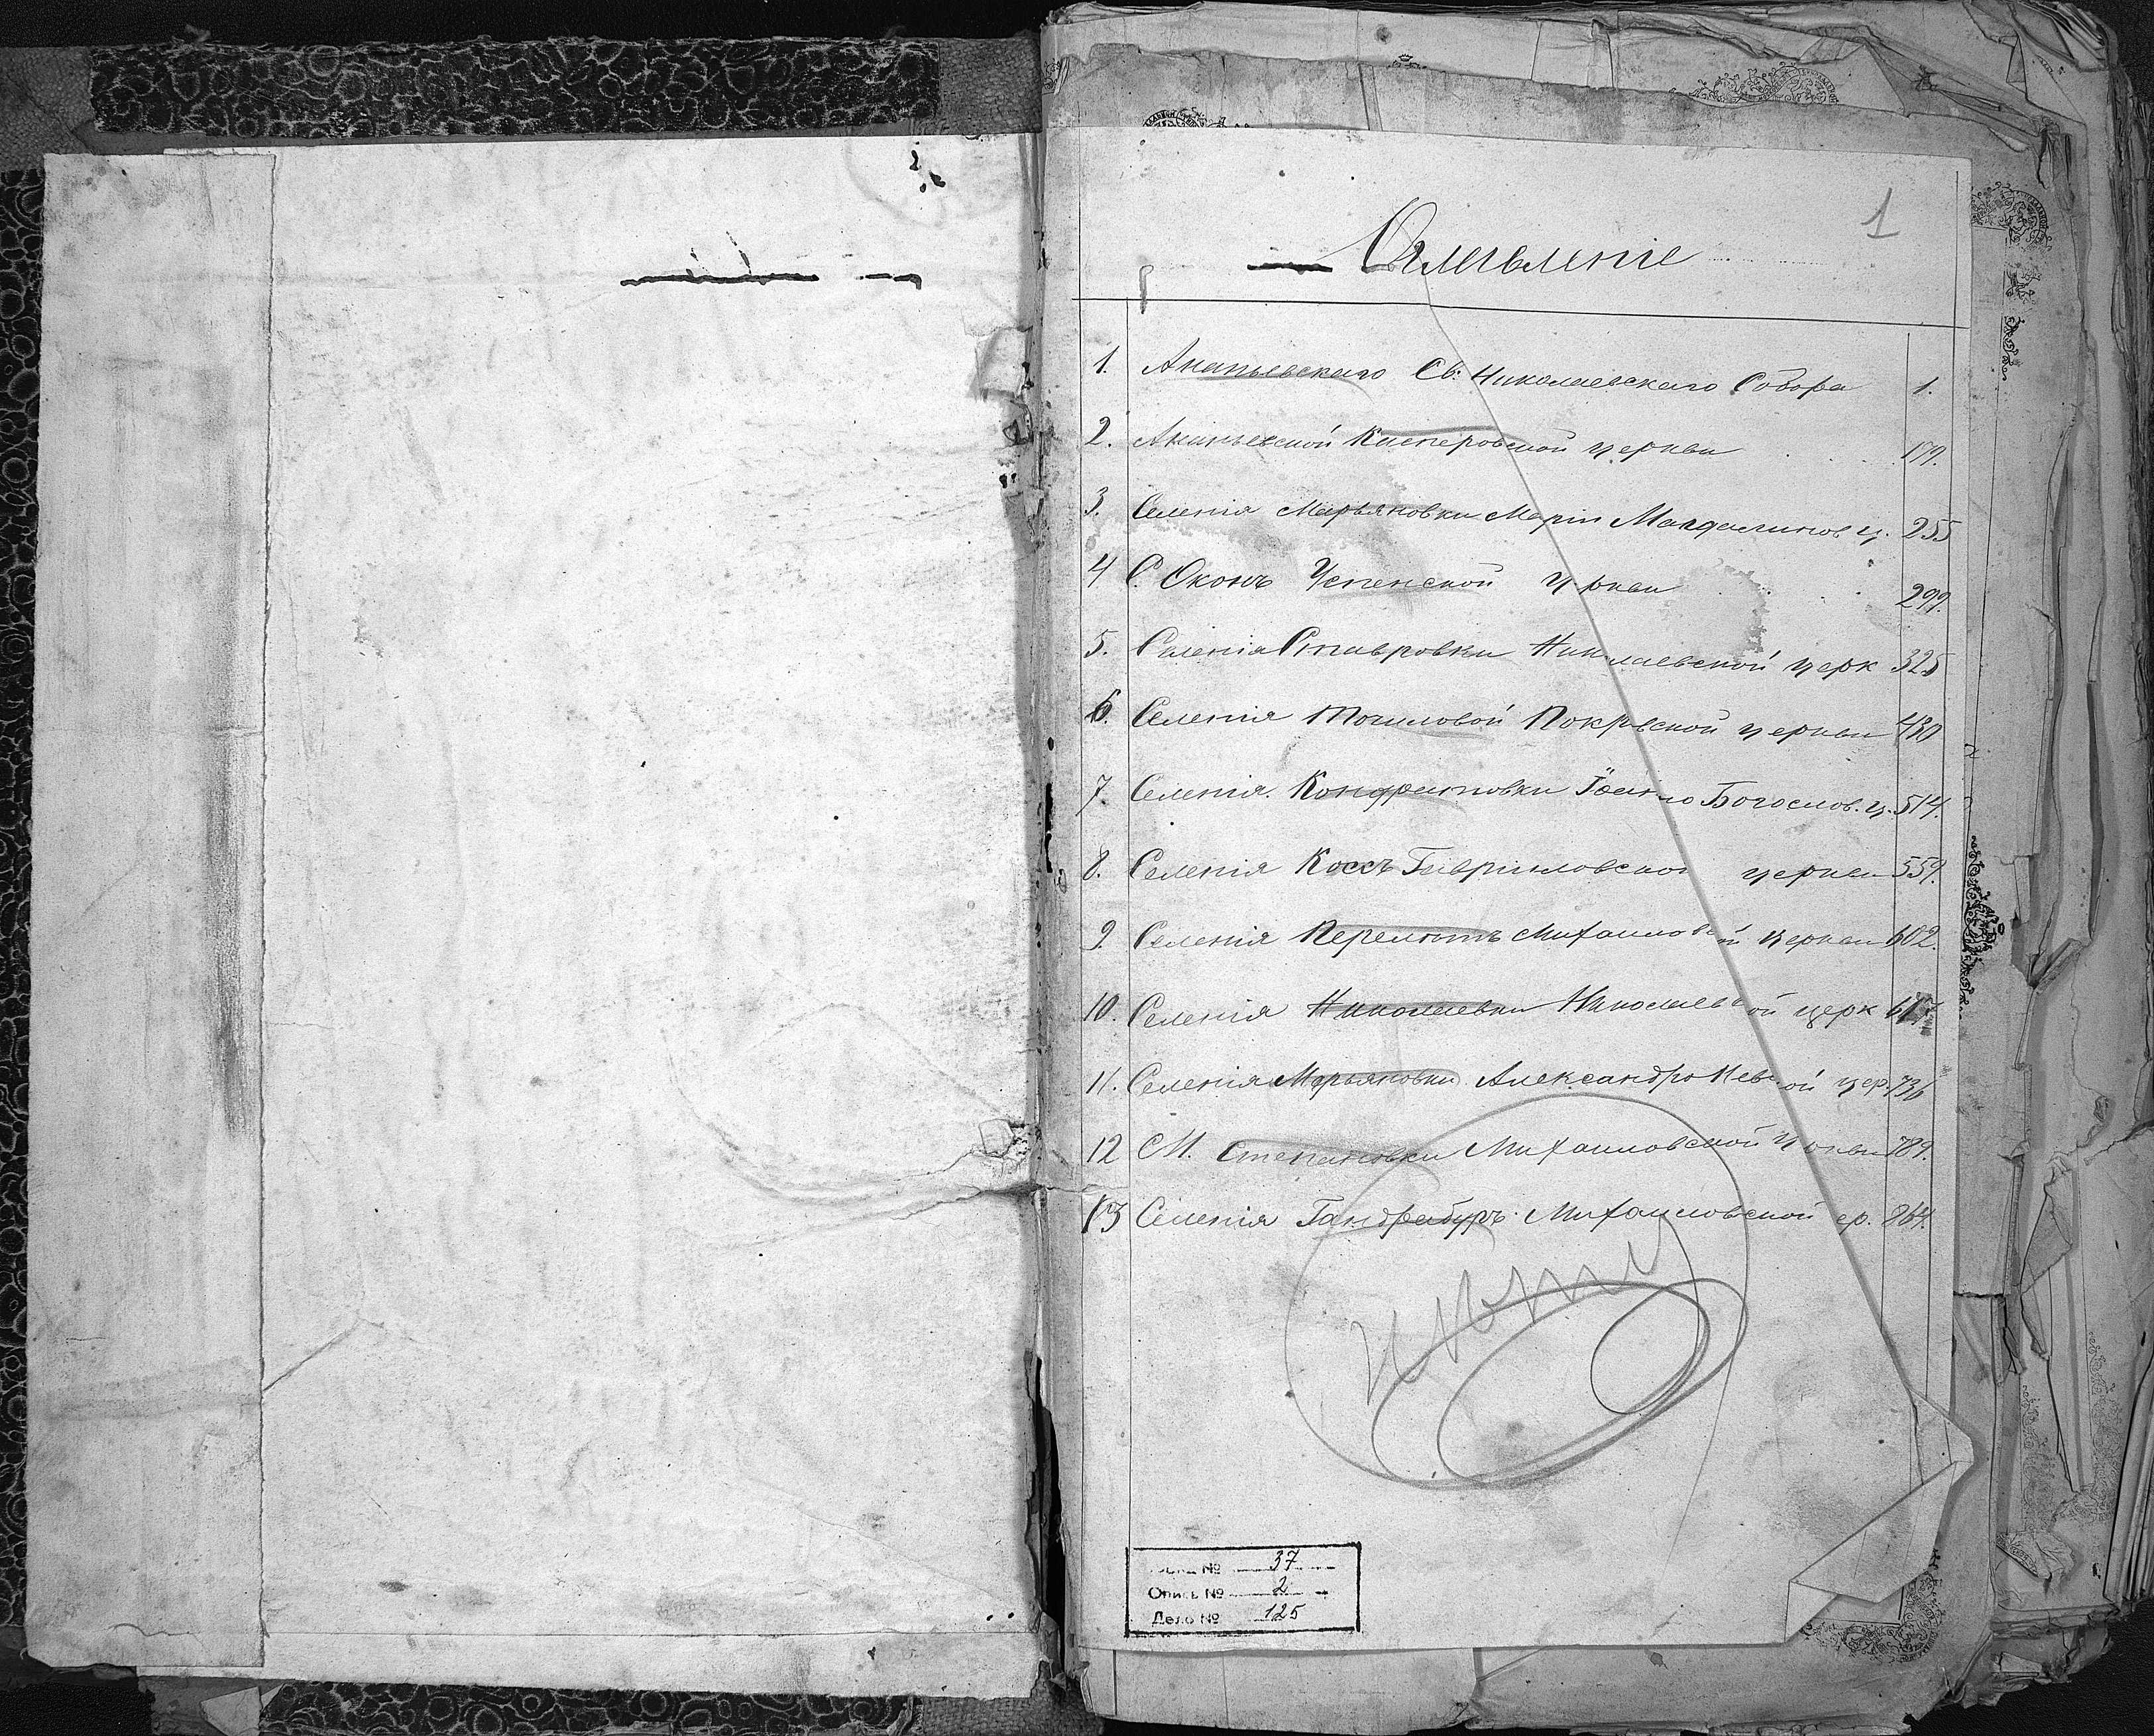 1
Оглавленіе
1. Ананьевскаго Св: Николаевскаго Собора 1.
2. Ананьевской Касперовской церкви 179.
3. Селенія Марьяновки Маріи Магдалинов ц. 255
4 С. Оконъ Успенской цркви 299.
5. Селенія Ставровки Николаевской церк 325
6. Селенія Точиловой Покрвской церкви 430
7. Селенія Кондратовки Іоанно Богослов. ц. 514.
8. Селенія Коссъ Гавриловской церкви 559.
9. Селенія Перелетъ Михайловой церкви 602.
10. Селенія Николаевки Николаевой церк
11. Селенія Марьяновки Александро Невой цер. 736
12 М. Степановки Михаиловской цркви 789.
13 Селенія Гандрабуръ Михаиловской ер. 864.
№ 37
Опись № 2
Дело № 125